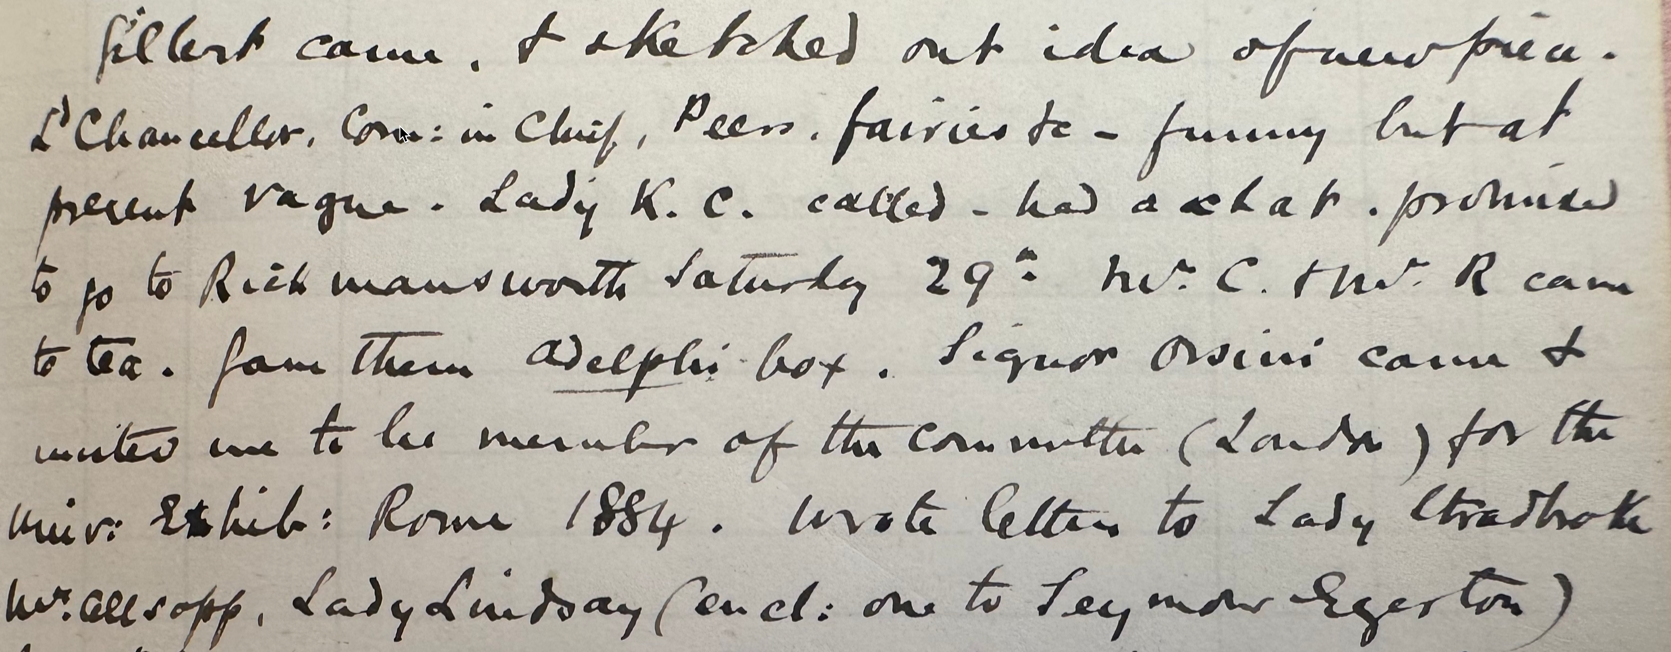 Gilbert came, & sketched out idea of new piece.
Ld Chancellor, Com: in Chief, Peers, fairies &c - funny but at
present vague. Lady K. C. called - had a chat. promised
to go to Rickmansworth Saturday 29th: Mrs. C. & Mr. R came
to tea. Gave them Adelphi box. Signor Orsini came &
invited me to be member of the Committee (London) for the
Univ: Exhib: Rome 1884. Wrote letters to Lady Stradbroke
Mr. Allsopp, Lady Lindsay (encl: one to Seymour Egerton)